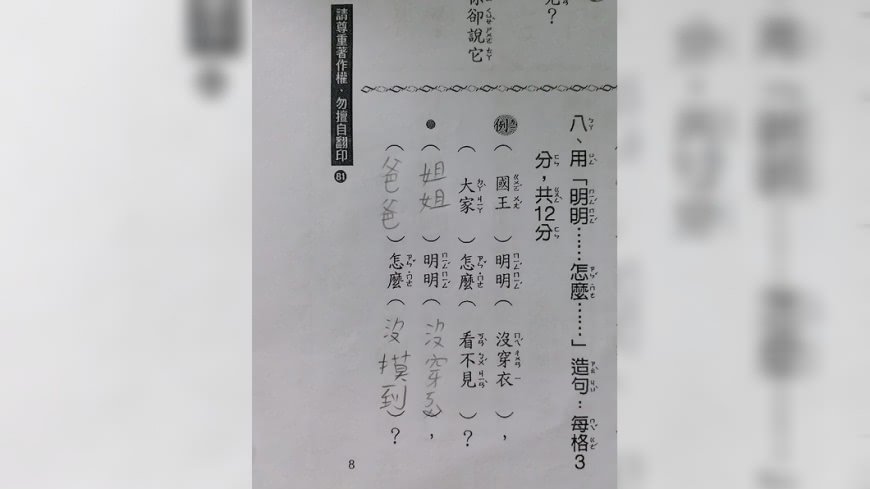 見？
你卻說它
八、用「明明……怎麼……」造句：每格3
分，共12分
例（國王）明明（沒穿衣），
（大家）怎麼（看不見）？
（姐姐）明明（沒穿ㄎ），
（爸爸）怎麼（沒摸到）？
請尊重著作權．勿擅自翻印
81
8